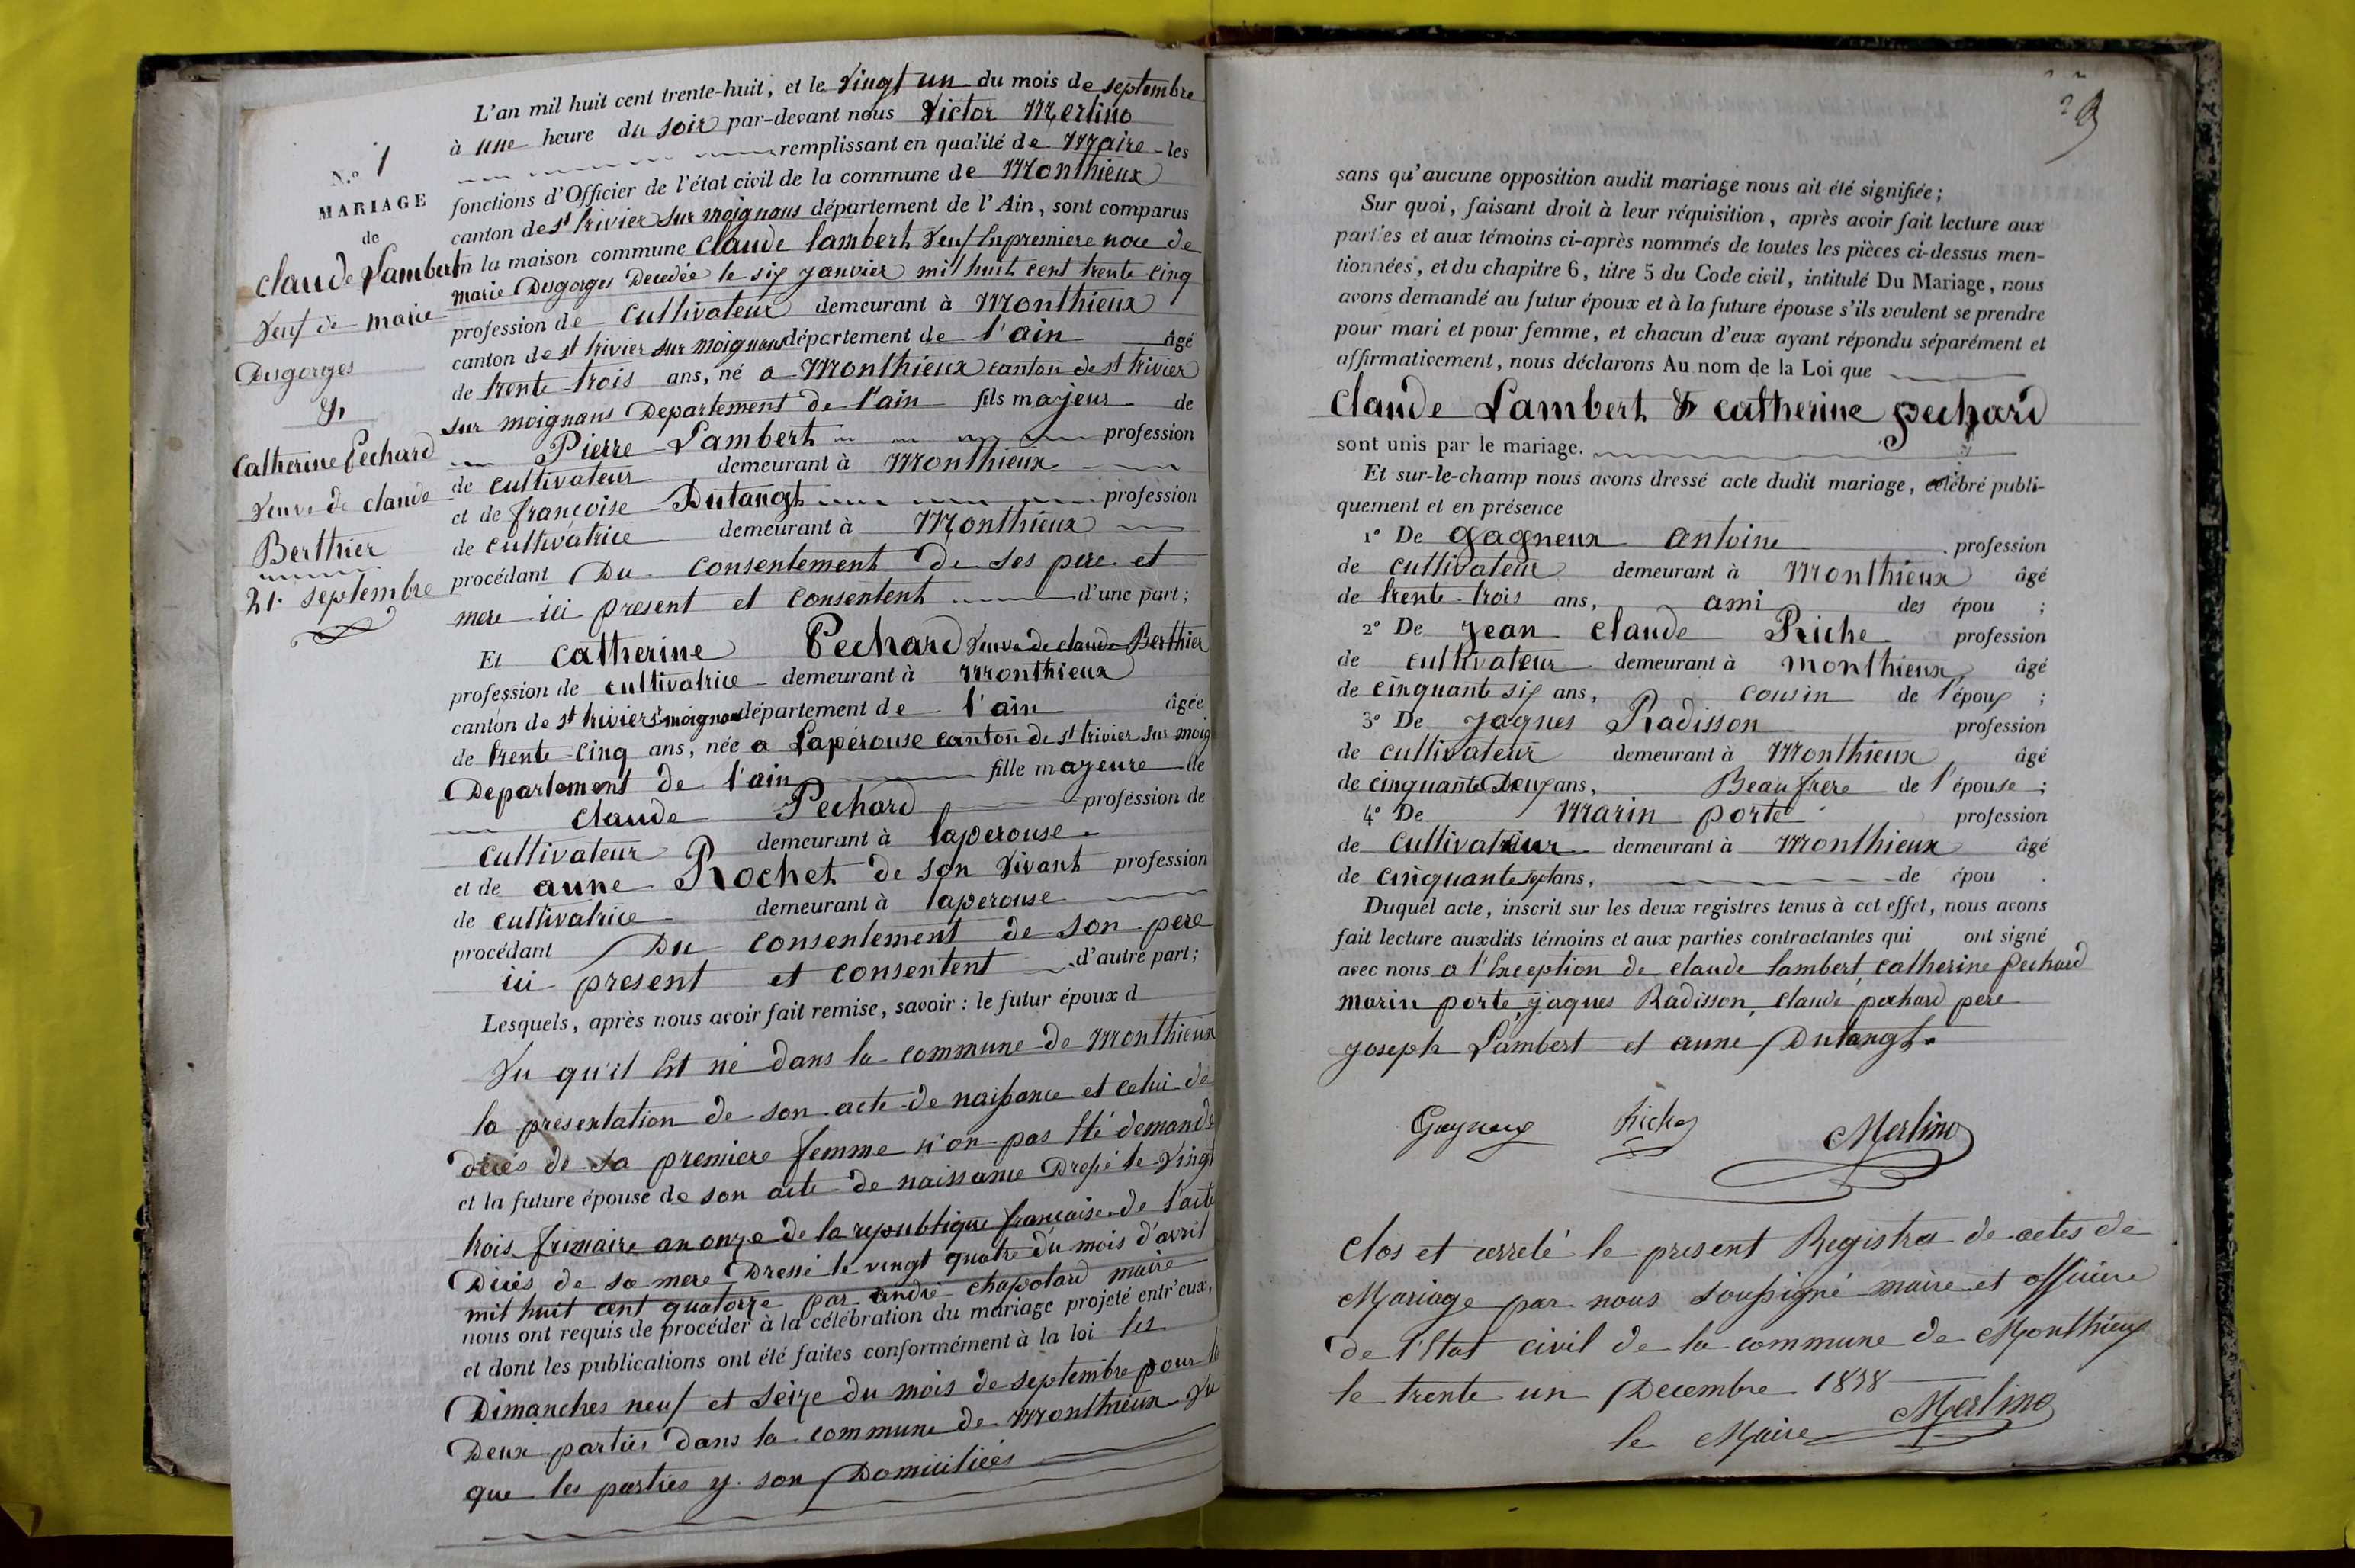 N.° 1
MARIAGE
de
Claude Lambert
Veuf de marie
Desgorges
&
Catherine Pechard
Veuve de claude
Berthier
21. septembre
L'an mil huit cent trente-huit, et le Vingt un du mois de septembre
à une heure du soir par-devant nous Victor Merlino
remplissant en qualité de Maire les
fonctions d'Officier de l'état civil de la commune de Monthieux
canton de st trivier sur moignans département de l'Ain, sont comparus
en la maison commune Claude lambert Veuf en premiere noce de
marie Desgorges Decedée le six janvier mil huit cent trente cinq
profession de Cultivateur demeurant à Monthieux
canton de st trivier sur moignans département de l'ain âgé
de trente trois ans, né a Monthieux canton de st trivier
sur moignans Departement de l'ain fils majeur de
Pierre Lambert profession
de cultivateur demeurant à Monthieux
et de françoise Dutangt profession
de cultivatrice demeurant à Monthieux
procédant Du consentement de ses pere et
mere ici present et consentent d'une part;
Et Catherine Pechard Veuve de claude Berthier
profession de cultivatrice demeurant à Monthieux
canton de st trivier s. moignans département de l'ain âgée
de trente cinq ans, née a Laperouse canton de st trivier sur moig
Departement de l'ain fille majeure de
Claude Pechard profession de
cultivateur demeurant à laperouse
et de anne Rochet de son Vivant profession
de cultivatrice demeurant à laperouse
procédant Du consentement de son pere
ici present et consentent d'autre part;
Lesquels, après nous avoir fait remise, savoir: le futur époux d
Vu qu'il Est né dans la commune de Monthieux
la presentation de son acte de naissance et celui de
deces de sa premiere femme n'on pas été demandé
et la future épouse de son acte de naissance Dressé le Vingt
trois frimaire an onze de la republique française de l'acte
Décés de sa mere Dressé le vingt quatre du mois d'avril
mil huit cent quatorze par andré chapolard maire
nous ont requis de procéder à la célébration du mariage projeté entr'eux,
et dont les publications ont été faites conformément à la loi les
Dimanches neuf et seize du mois de septembre pour le
Deux parties dans la commune de Monthieux Vu
que les parties y son Domiciliées
sans qu'aucune opposition audit mariage nous ait été signifiée;
Sur quoi, faisant droit à leur réquisition, après avoir fait lecture aux
parties et aux témoins ci-après nommés de toutes les pièces ci-dessus men-
tionnées, et du chapitre 6, titre 5 du Code civil, intitulé Du Mariage, nous
avons demandé au futur époux et à la future épouse s'ils veulent se prendre
pour mari et pour femme, et chacun d'eux ayant répondu séparément et
affirmativement, nous déclarons Au nom de la Loi que
Claude Lambert & catherine pechard
sont unis par le mariage.
Et sur-le-champ nous avons dressé acte dudit mariage, célébré publi-
quement et en présence
1° De Gagneux Antoine profession
de cultivateur demeurant à Monthieux âgé
de trente trois ans, ami des épou ;
2° De Jean Claude Riche profession
de cultivateur demeurant à monthieux âgé
de cinquante six ans, cousin de l'époux ;
3° De Jaques Radisson profession
de cultivateur demeurant à Monthieux âgé
de cinquante Deux ans, Beaufrere de l'épouse ;
4° De Marin porte profession
de Cultivateur demeurant à Monthieux âgé
de cinquante sept ans, de épou .
Duquel acte, inscrit sur les deux registres tenus à cet effet, nous avons
fait lecture auxdits témoins et aux parties contractantes qui ont signé
avec nous a l'Exception de claude lambert, catherine pechard
marin porte, jaques Radisson, claude pechard pere
joseph Lambert et anne Dutangt.
Gagneux Riche Merlino
Clos et arreté le present Registra de actes de
Mariage par nous soussigné maire et officiere
de l'Etat civil de la commune de Monthieux
le trente un Decembre 1838
le Maire Merlino